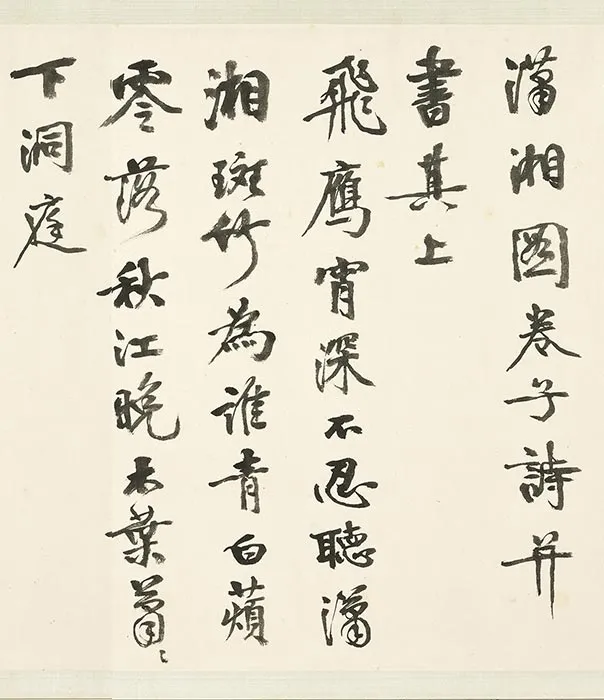 瀟湘圖卷子詩并
書其上
飛鷹宵深不忍聽瀟
湘斑竹為誰青白蘋
零落秋江晚木葉蕭〻
下洞庭